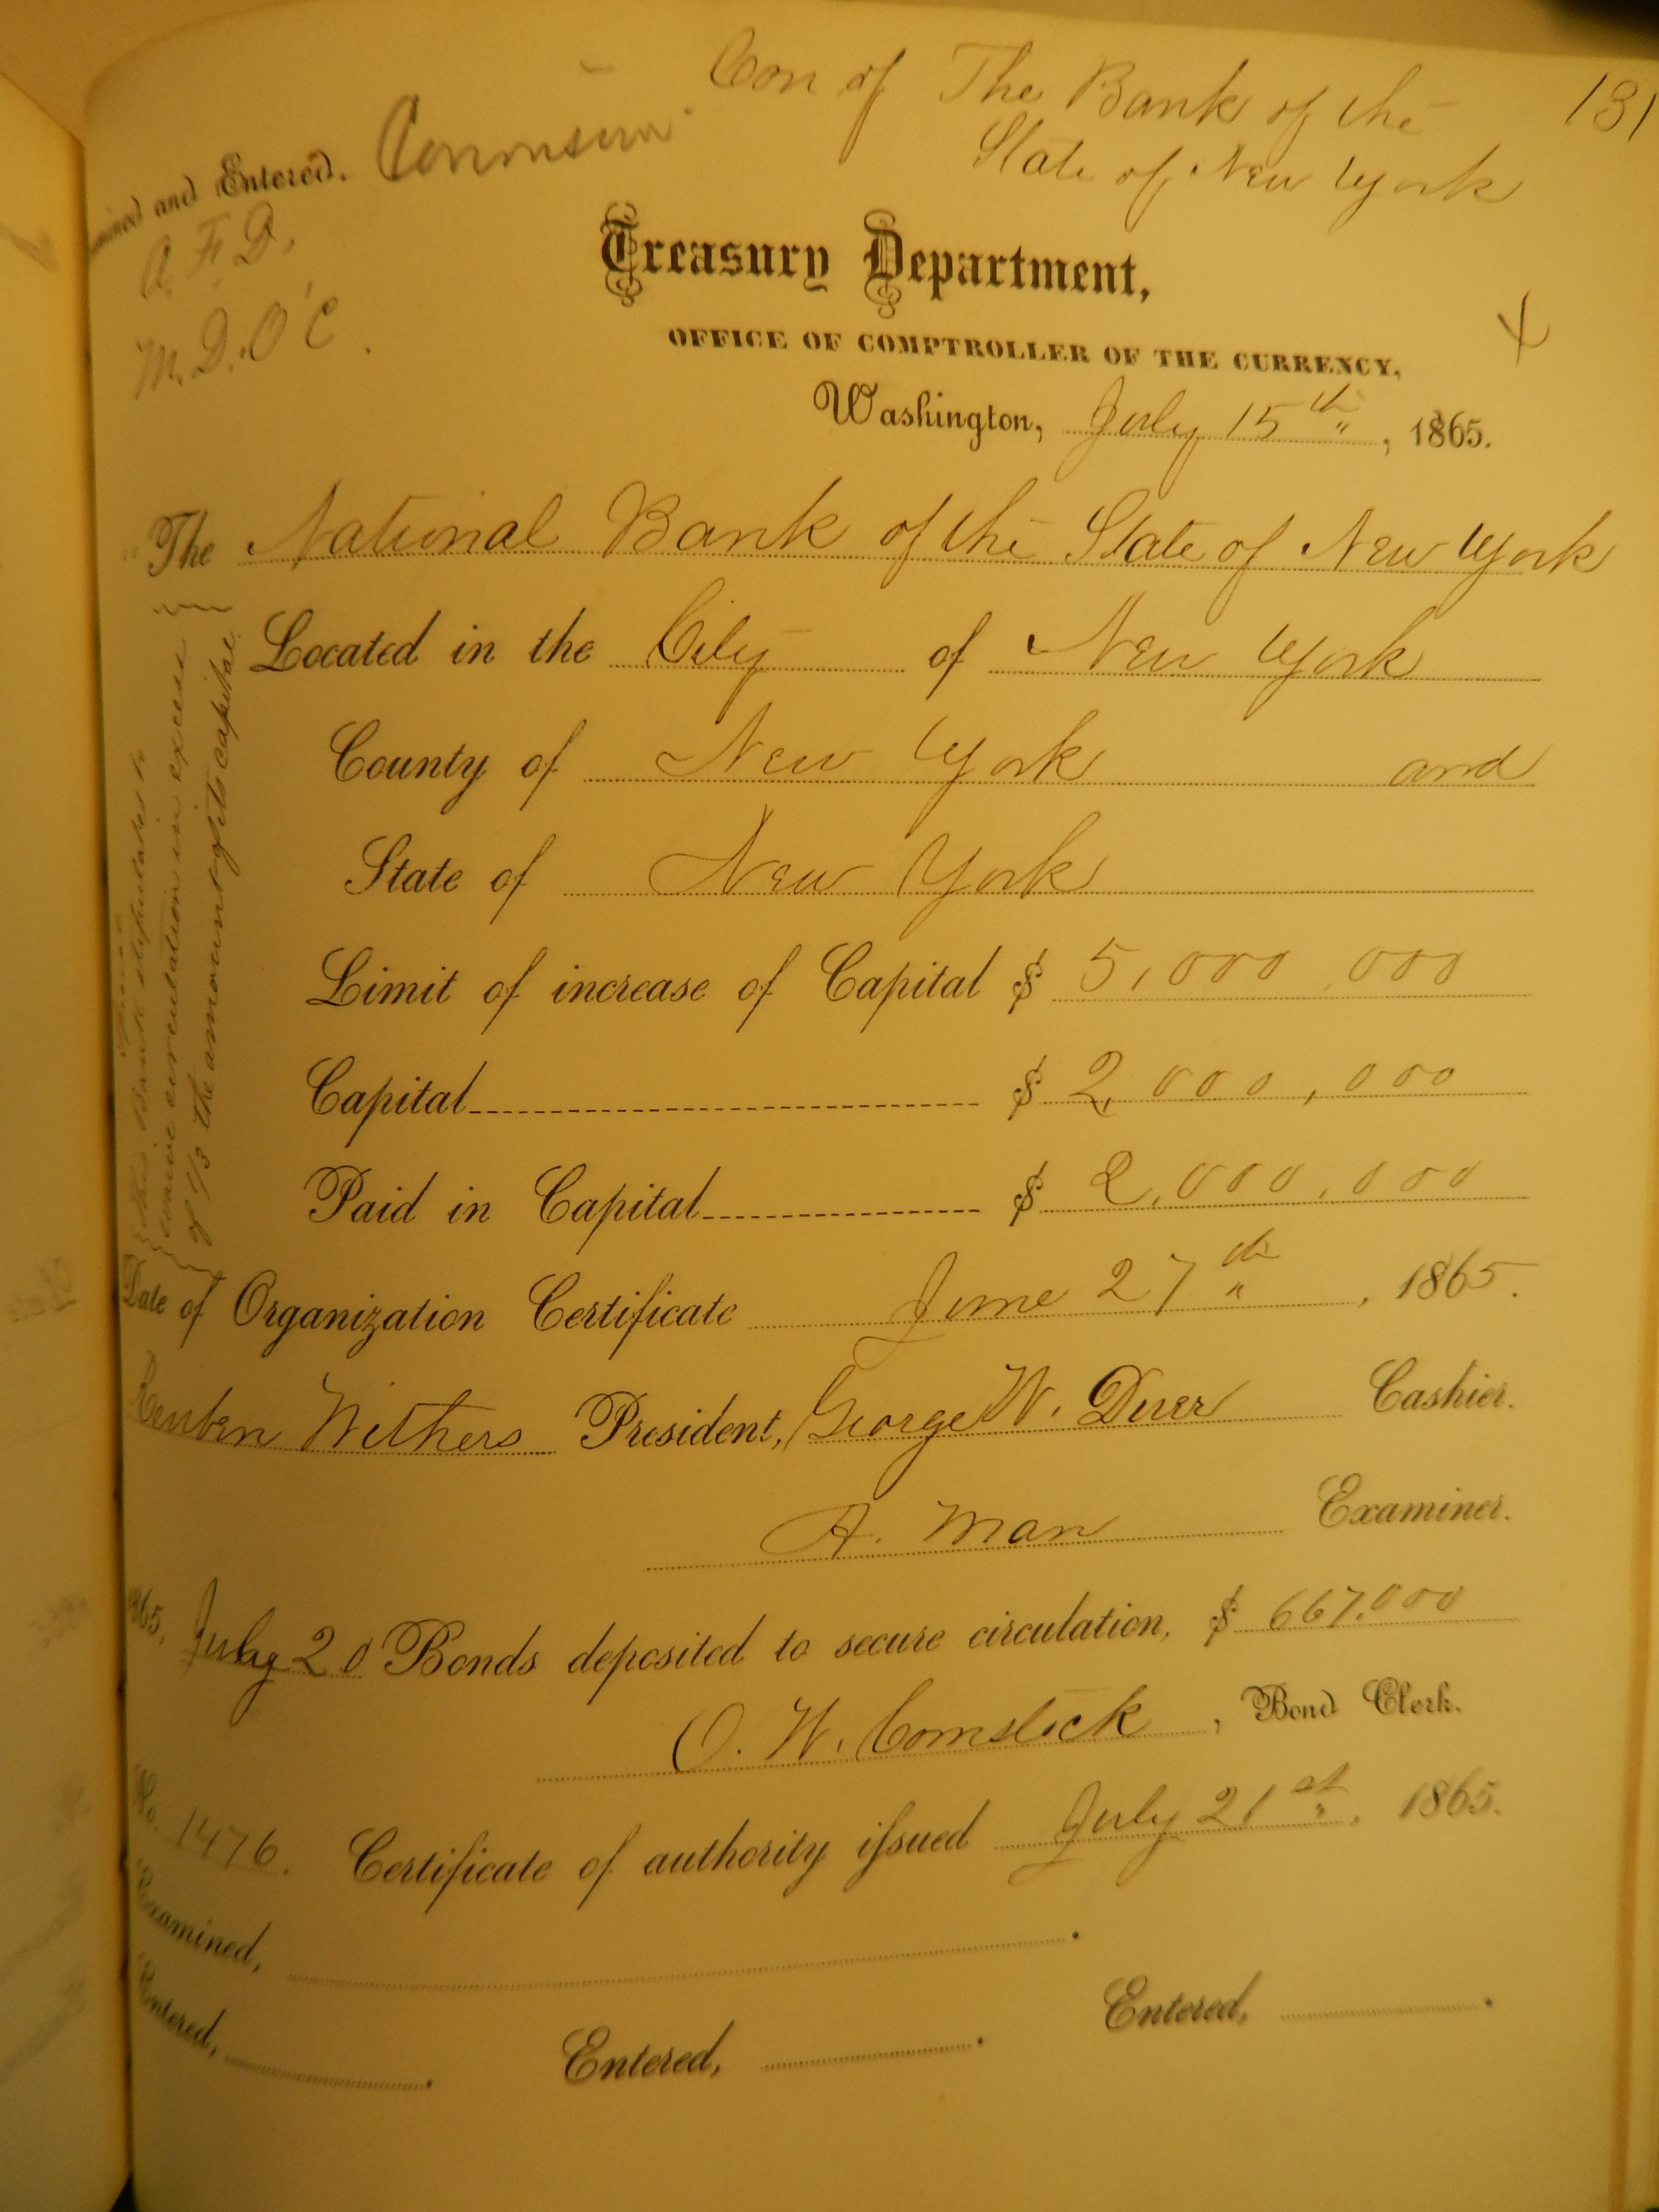 Con of The Bank of the
State of New York
131
and Entered. Conversion
A. F. D.
M. D. O'C.
Treasury Department,
OFFICE OF COMPTROLLER OF THE CURRENCY,
Washington, July 15th, 1865.
The National Bank of the State of New York
Located in the City of New York
County of New York and
State of New York
Limit of increase of Capital $ 5,000,000
Capital $ 2,000,000
Paid in Capital $ 2,000,000
This Bank stipulates to
waive circulation in excess
of 1/3 the amount of its capital.
Date of Organization Certificate June 27th, 1865.
Reuben Withers President, George W. Duer Cashier.
A. Man Examiner.
1865. July 20 Bonds deposited to secure circulation, $ 667.000
O. W. Comstock, Bond Clerk.
No. 1476. Certificate of authority issued July 21st, 1865.
Examined,
Entered, Entered, Entered,